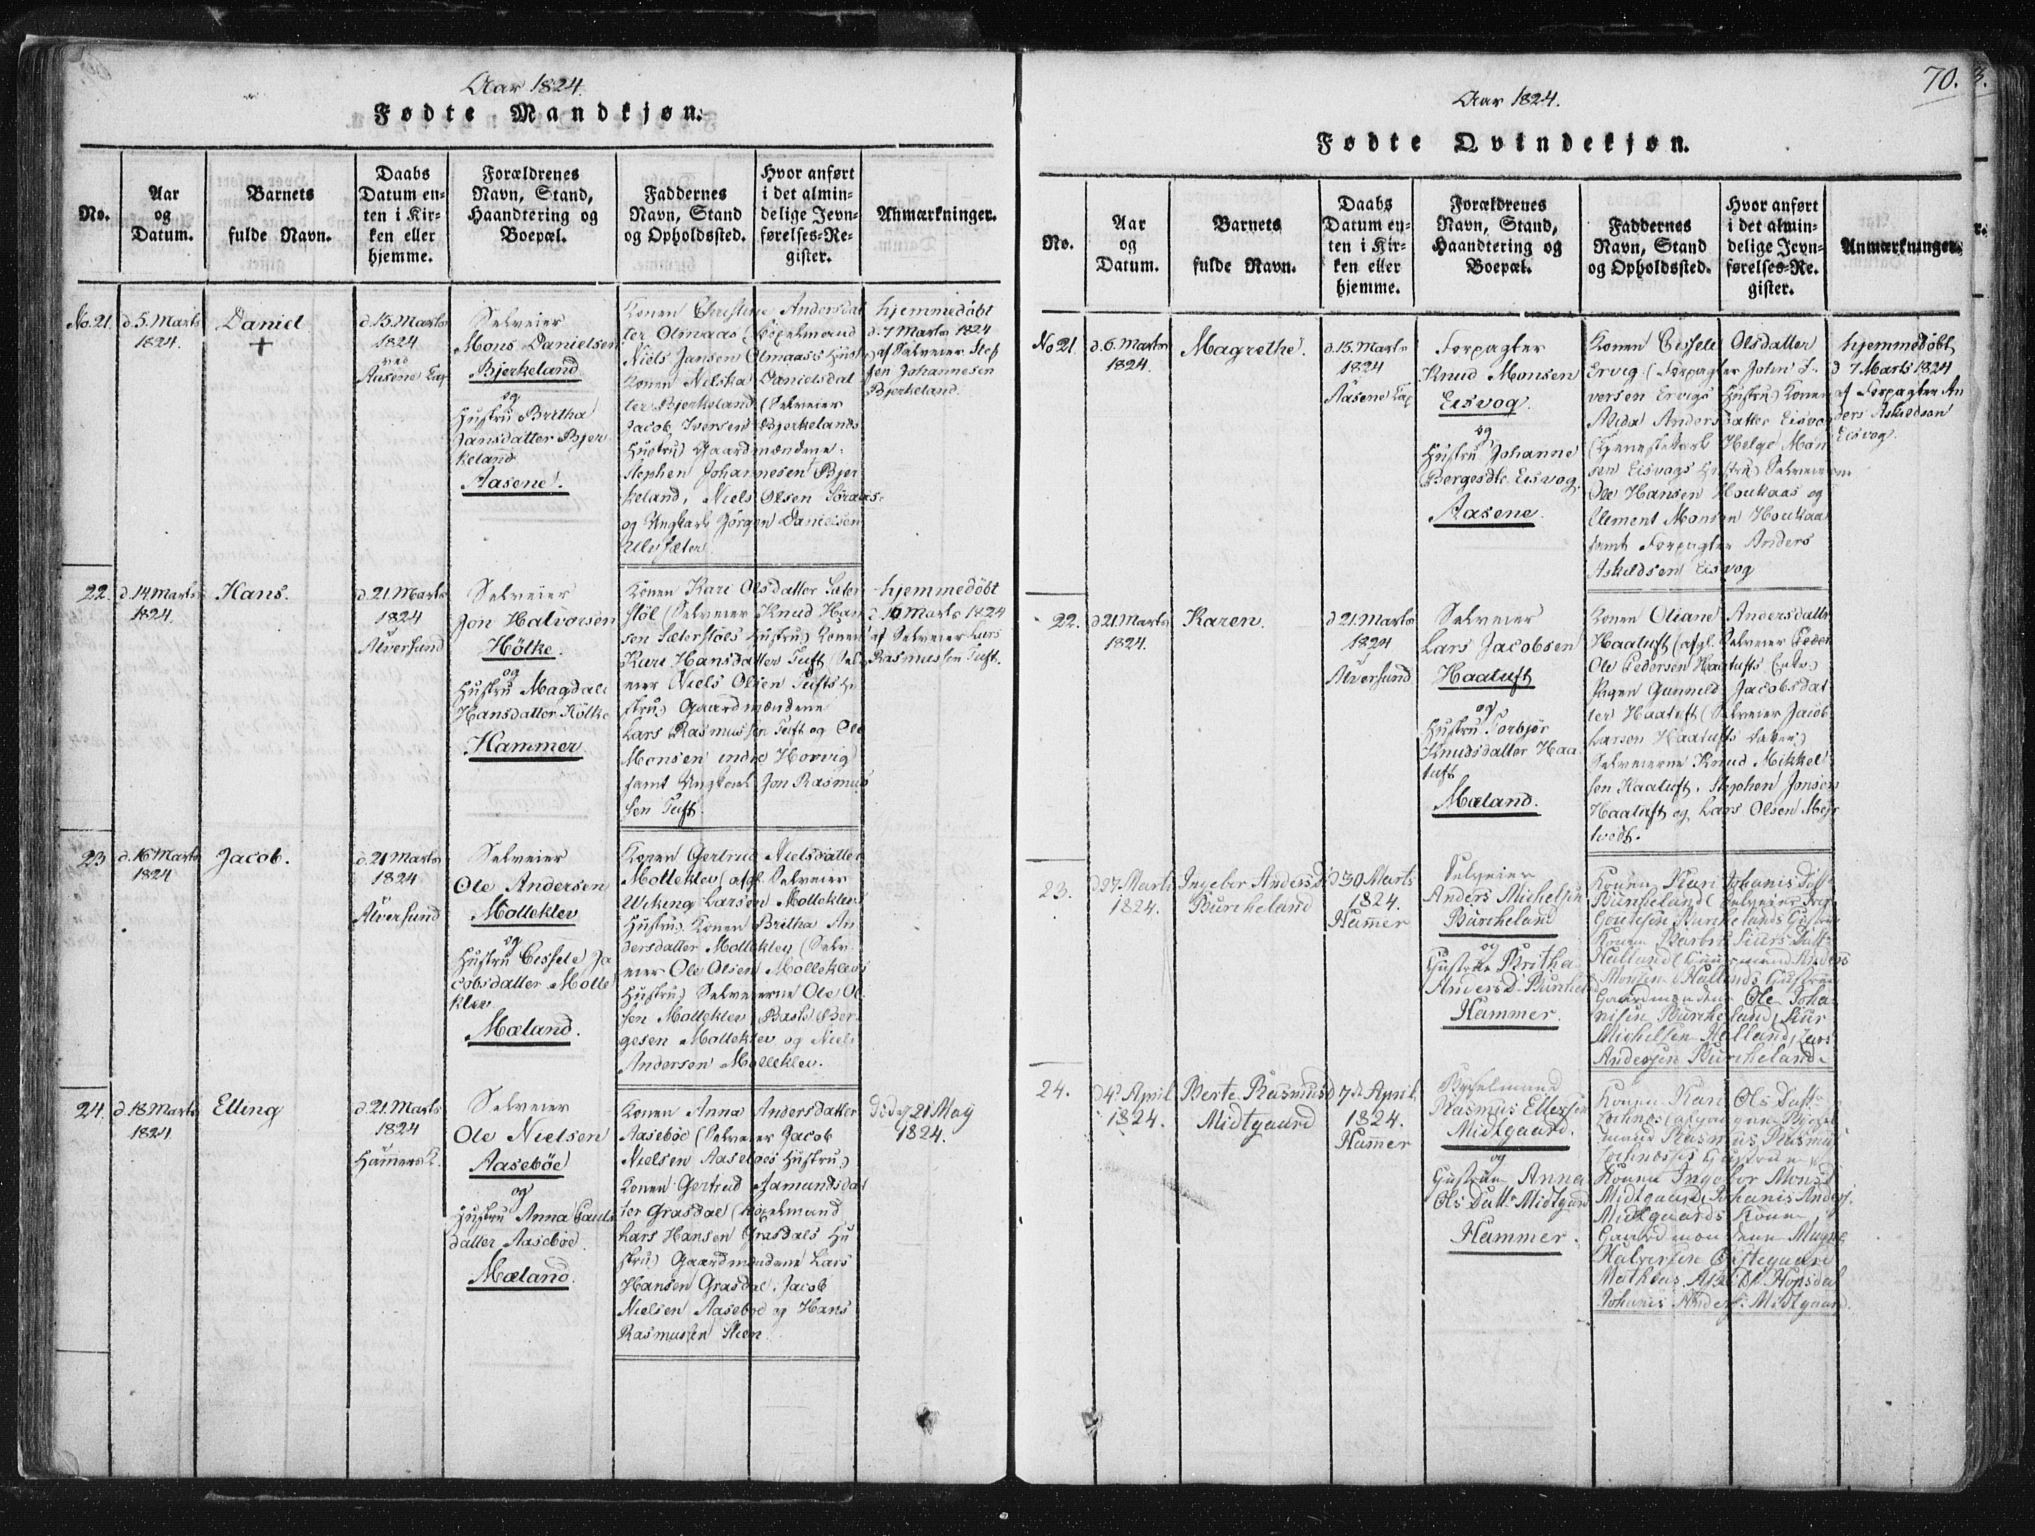 Aar 1824.
Fødte Mandkjøn.
No.
Aar
og
Datum.
Barnets
fulde Navn.
Daabs
Datum en-
ten i Kir-
ken eller
hjemme.
Forældrenes
Navn, Stand,
Haandtering og
Boepæl.
Faddernes
Navn, Stand
og Opholdssted.
Hvor anført
i det almin-
delige Jevn-
førelses-Re-
gister.
Anmærkninger.
No. 21.
d. 5. Marts
1824.
Daniel
+
d. 15. Marts
1824
ved
Aasene Cap
Selveier
Mons Danielsen
Bjerkeland
og
Hustru Britha
Jansdatter Bjer
keland.
Aasene.
Konen Christine Andersdat
ter Olmaas (Bøxelmand
Niels Jansen Olmaass Hust
Konen Nilska Danielsdat
ter Bjerkeland (Selveier
Jacob Iversen Bjerkelands
Hustru) Gaardmændene
Stephen Johannesen Bjer
keland, Niels Olsen
og Ungkarl Jørgen Danielsen
Ulvsæter.
hjemmedøbt
d. 7 Marts 1824
af Selveier Stef
fen Johannesen
Bjerkeland.
22.
d. 14 Marts
1824.
Hans.
d. 21. Marts
1824
Alversund
Selveier
Jon Halvorsen
Hölke.
og
Hustru Magdali
Hansdatter Hölke
Hammer
Konen Kari Olsdatter Sæter
stöl (Selveier Knud Han
sen Sæterstöls Hustru) Konen
Kari Hansdatter Tuft (Sel
veier Niels Olsen Tufts Hu
stru) Gaardmændene
Lars Rasmussen Tuft og Ole
Monsen indre Hopvig
samt Ungkarl Jon Rasmus
sen Tuft.
hjemmedøbt
d. 16 Marts 1824
af Selveier Lars
Rasmussen Tuft.
23
d. 16 Marts
1824
Jacob.
d. 21 Marts
1824
Alversund
Selveier
Ole Andersen
Molleklev
og
Hustru Cissele Ja
cobsdatter Molle
klev
Mæland.
Konen Gertrud Nielsdatter
Molleklev (afg. Selveier
Wiking Larsen Molleklevs
Hustru) Konen Britha An
dersdatter Molleklev (Selv-
eier Ole Olsen Molleklevs
Hustru) Selveierne Ole Ol
sen Molleklev, Ber-
gesen Molleklev og Niels
Andersen Molleklev.
24.
d. 18 Marts
1824
Elling
d. 21. Marts
1824
Hammers K.
Selveier
Ole Nielsen
Aaseböe
og
Hustru Anna Pauls
datter Aaseböe.
Mæland.
Konen Anna Andersdatter
Aaseböe (Selveier Jacob
Nielsen Aaseboes Hustru)
Konen Gertrud Amundsdat
ter Grasdal (Bøxelmand
Lars Hansen Grasdals Hu
stru) Gaardmændene Lars
Hansen Grasdal, Jacob
Nielsen Aaseböe og Hans
Rasmussen Steen.
Död 21 May
1824.
70.
Aar 1824.
Fødte Qvindekjøn.
No.
Aar
og
Datum.
Barnets
fulde Navn.
Daabs
Datum en-
ten i Kir-
ken eller
hjemme.
Forældrenes
Navn, Stand,
Haandtering og
Boepæl.
Faddernes
Navn, Stand
og Opholdssted.
Hvor anført
i det almin-
delige Jevn-
førelses-Re-
gister.
Anmærkninger.
No 21.
d. 6. Marts
1824.
Magrethe.
d. 15. Marts
1824
Aasene Cap
Forpagter
Knud Monsen
Eisvog.
og
Hustru Johanne
Bergesdtr. Eisvog.
Aasene.
Konen Cissele Olsdatter
Ervig (Forpagter John I-
versen Ervigs Hustru) Konen
Andersdatter Eisvog
(Tjenestekarl Helge Mon
sen Eisvogs Hustru) Selveierne
Ole Hansen Houkaas og
Clement Monsen Houkaas
samt Forpagter Anders
Askeldsen Eisvog
hjemmedøbt
d 7 Marts 1824
af Forpagter An
ders Askeldsen
Eisvog.
22.
d. 21 Marts
1824.
Karen.
d. 21. Marts
1824
Alversund
Selveier
Lars Jacobsen
Haatuft
og
Hustru Torbjør
Knudsdatter Haa
tuft
Mæland.
Konen Oliane Andersdatter
Haatuft (afgl. Selveier Peder
Ole Pedersen Haatufts Enke)
Pigen Gunneld Jacobsdat
ter Haatuft (Selveier Jacob
Larsen Haatufts Datter)
Selveierne Knud Mikkel
sen Haatuft, Stephen Jonsen
Haatuft og Lars Olsen Mej
tvedt.
23.
d 27. Marts
1824.
Ingebor Anders D.
Burcheland
d 30 Marts
1824.
Hammer
Selveier
Anders Michelsen
Burcheland
og
Hustrue Britha
Anders D. Burchel
Hammer.
Konen Kari Johanis Datt.
Burcheland (Selveier
Burchelands Hustrue
Konen Siurs Datt.
Helland ( Anders
Monsen Hellands Hustrue
Gaardmændene Ole Joha-
nisen Burcheland, Siur
Michelsen Helland, Lars
Andersen Burcheland.
24.
d 4. April
1824.
Berte Rasmusd
Midtgaard
7d. April
1824.
Hammer
Bøxelmand
Rasmus Ellefsen
Midtgaard.
og
Hustrue Anna
Ols Datt. Midtgaard
Hammer.
Konen Kari Ols Datt.
Rasmus Rasmus
Hustrue
Konen Ingebor Monsd
Midtgaard, Johanis Anders.
Midtgaards Kone
Gaardmændene Mogne
Halversen Østegaard
Mathias Hopsdal
Johanis Anders. Midtgaard.